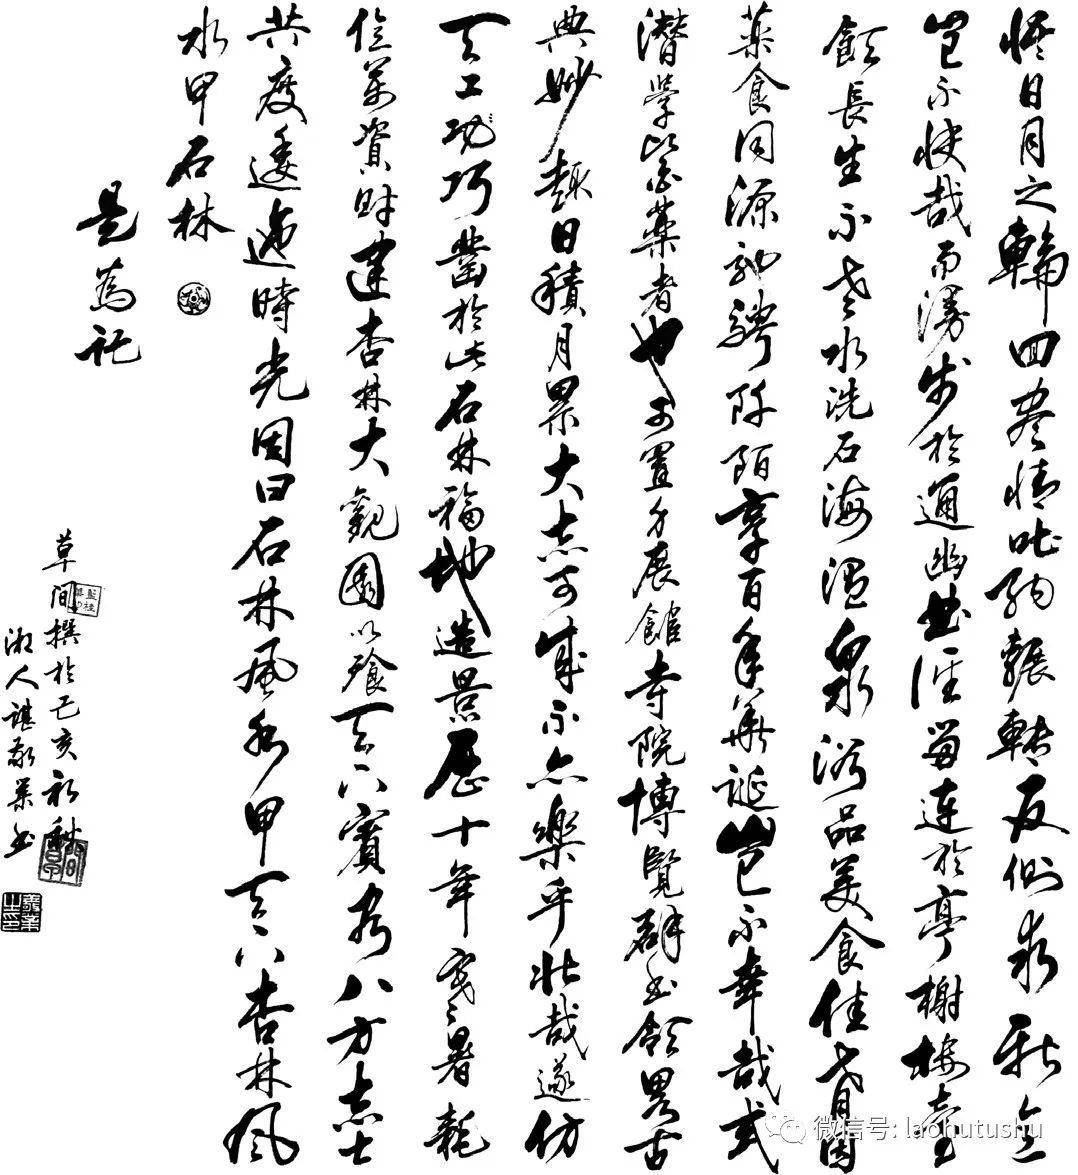 悟日月之輪回盡情吐納輾轉反側求
豈不快哉而漫步於通幽曲徑留連於亭榭樓臺
飲長生不老水洗石海溫泉浴品美食佳肴因
藥食同源馳騁阡陌享百年華誕豈不幸哉或
潛學藥者也可置身展館寺院博覽群書領略古
典妙趣日積月累大志可成不亦樂乎壯哉遂仿
天工巧鑿於此石林福地造景歷十年寒暑耗
億萬資財建杏林大觀園以饗天下賓客八方志士
共度逶迤時光因曰石林風水甲天下杏林風
水甲石林
是為記
草間撰於己亥初秋
湘人諶敬業書
微信号: laohutushu